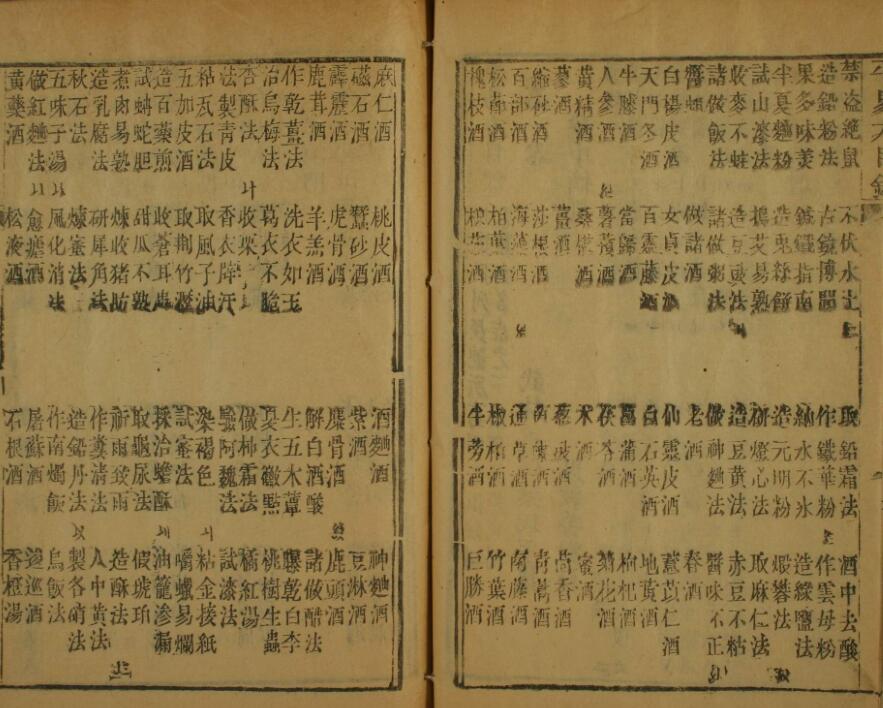 禁盗絶鼠　不伏水土　取鉛霜法　酒中去酸
造鉛粉法　古鏡博　作鐵華粉　作雲母粉
果多味美　鐵鍼指南　納水不氷　造綠鹽法
半夏麯粉　造兎絲餅　造元明粉　煅礬法
試山漆法　搗艾易熟　研燈心法　取麻仁法
收麥不蛀　造豆豉法　造豆黄法　赤豆不粘
諸做飯法　諸做粥法　做神麯法　醬味不正
做諸酒　老酒　春酒
白楊皮酒　女貞皮酒　仙靈皮酒　薏苡仁酒
天門冬酒　百靈藤酒　白石英酒　地黄酒
牛膝酒　當歸酒　菖蒲酒　枸杞酒
人參酒　薯蕷酒　茯苓酒　菊花酒
黄精酒　桑椹酒　术酒　蜜酒
蓼酒　薑酒　葱豉酒　茴香酒
縮砂酒　莎根酒　茵蔯酒　青蒿酒
百部酒　海藻酒　通草酒　南藤酒
松節酒　柏葉酒　椒柏酒　竹葉酒
槐枝酒　酒　牛蒡酒　巨勝酒
麻仁酒　桃皮酒　酒麯酒　神麯酒
磁石酒　蠶砂酒　紫酒　豆淋酒
霹靂酒　虎骨酒　麋骨酒　鹿頭酒
鹿茸酒　羊羔酒　解白酒酸　諸做醋法
作乾薑法　洗衣如玉　生五木蕈　曝乾白李
治烏梅法　葛衣不脆　夏衣黴點　桃樹生蟲
香酥法　收栗　做柿霜法　橘紅湯
法製青皮　香衣辟汗　驗阿魏法　試漆法
粘瓦石法　取風子油　染褐色　粘金接紙
五加皮酒　取荆竹瀝　試蜜法　嚼蠟易爛
造百藥煎　收蒼耳蟲　採治蟾酥　油籠滲漏
試蚺蛇胆　甜瓜不熟　取龜尿法　假琥珀
煮肉易熟　煉收猪肪　祈雨致雨　造酥法
造乳腐法　研犀角法　作糞清法　人中黄法
秋石法　煉蜜法　造鉛丹法　製各硝法
五味子湯　風化消法　作南燭飯　烏飯法
做紅麯法　愈瘧酒　屠蘇酒　逡巡酒
黄藥酒　松液酒　石根酒　香橙湯